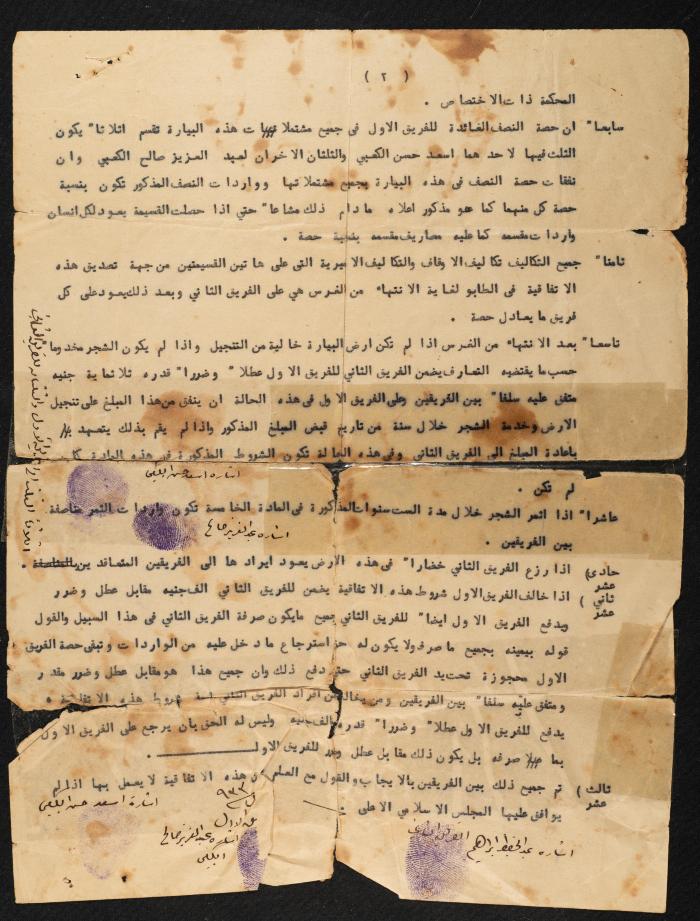 ( ٢ )
المحكمة ذات الاختصاص .
سابعا" ان حصة النصف العائدة للفريق الاول في جميع مشتملات هذه البيارة تقسم اثلاثا" يكون
الثلث فيها لاحدهما اسعد حسن الكعبي والثلثان الاخران لعبد العزيز صالح الكعبي وان
نفقات حصة النصف في هذه البيارة بجميع مشتملاتها وواردات النصف المذكور تكون بنسبة
حصة كل منهما كما هو مذكور اعلاه مادام ذلك مشاعا" حتي اذا حصلت القسيمة يعود لكل انسان
واردات مقسمه كما عليه مصاريف مقسمه بنسبة حصة .
ثامنا" جميع التكاليف تكاليف الاوقاف والتكاليف الاميرية التي على هاتين القسيمتين من جهة تصديق هذه
الاتفاقية في الطابو لغاية الانتهاء من الغرس هي على الفريق الثاني وبعد ذلك يعود على كل
فريق ما يعادل حصة .
تاسعا" بعد الانتهاء من الغرس اذا لم تكن ارض البيارة خالية من النجيل واذا لم يكون الشجر مخدوما"
حسب ما يقتضيه التعارف يضمن الفريق الثاني للفريق الاول عطلا" وضررا" قدره ثلاثماية جنيه
متفق عليه سلفا" بين الفريقين وعلى الفريق الاول في هذه الحالة ان ينفق من هذا المبلغ على تنجيل
الارض وخدمة الشجر خلال سنة من تاريخ قبض المبلغ المذكور واذا لم يقم بذلك يتعهد
باعادة المبلغ الى الفريق الثاني وفي هذه الحالة تكون الشروط المذكورة في هذه المادة كان
لم تكن .
عاشرا" اذا اثمر الشجر خلال مدة الست سنوات المذكورة في المادة الخامسة تكون واردات الثمر مناصفة
بين الفريقين .
حادي عشر ) اذا زرع الفريق الثاني خضارا" في هذه الارض يعود ايرادها الى الفريقين المتعاقدين .
ثاني عشر ) اذا خالف الفريق الاول شروط هذه الاتفاقية يضمن للفريق الثاني الف جنيه مقابل عطل وضرر
ويدفع الفريق الاول ايضا" للفريق الثاني جميع مايكون صرفة الفريق الثاني في هذا السبيل والقول
قوله بيمينه بجميع ما صرف ولا يكون له حق استرجاع ما دخل عليه من الواردات وتبقى حصة الفريق
الاول محجوزة تحت يد الفريق الثاني حتى دفع ذلك وان جميع هذا هو مقابل عطل وضرر مقدر
ومتفق عليه سلفا" بين الفريقين ومن يخالف من افراد الفريق الثاني شروط هذه الاتفاقية
يدفع للفريق الاول عطلا" وضررا" قدره الف جنيه وليس له الحق بان يرجع على الفريق الاول
بما صرفه بل يكون ذلك مقابل عطل وضرر للفريق الاول
ثالث عشر ) تم جميع ذلك بين الفريقين بالايجاب والقول مع العلم ان هذه الاتفاقية لا يعمل بها اذا لم
يوافق عليها المجلس الاسلامي الاعلى .
اشارة اسعد حسن الكعبي
اشارة عبد العزيز صالح
اشارة اسعد حسن الكعبي
اشارة عبد العزيز صالح
الكعبي
اشارة عبد الحفيظ ابراهيم